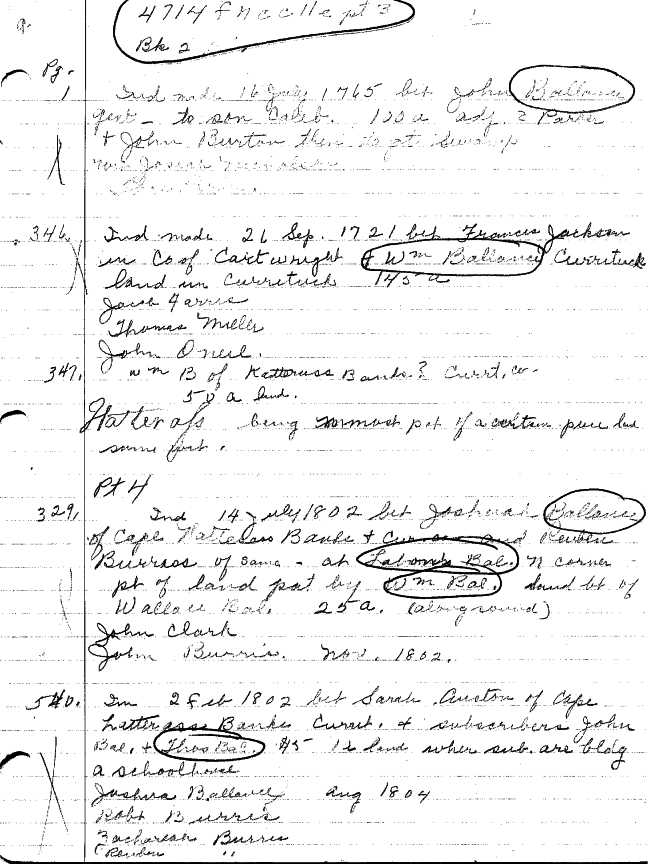 pt 3
Bk 2
Pg.
1 Ind made 16 July 1765 bet John Ballance
gent - to son Caleb. 100 a adj. ? Parker
+ John Burton then to pt
Josiah Nicholson
346. Ind made 26 Sep. 1721 bet Francis Jackson
in Co of Cartwright & Wm Ballance Currituck
land in Currituck 145 a
Jacob Farris
Thomas Miller
John Oneil.
347. Wm B of Katteruss Banks? Currt. co.
50 a land.
Hatterass being pat of a certain piece land
same
Pt 4
329. Ind 14 July 1802 bet Joshuah Ballance
of Cape Hatteless Banks + and Reuben
Burriss of same - at Bal. N corner
pt of land pat by Wm Bal. land bt of
Wallace Bal. 25 a. (along sound)
John Clark
John Burris. Nov. 1802.
540. Im 2 Feb 1802 bet Sarah Auston of Cape
Hatterass Banks Currit. & subscribers John
Bal. + Thos Bal. $5 land wher sub. are bldg
a schoolhouse
Joshua Ballance Aug 1804
Robt Burris
Zachareah Burris
(Reuben "